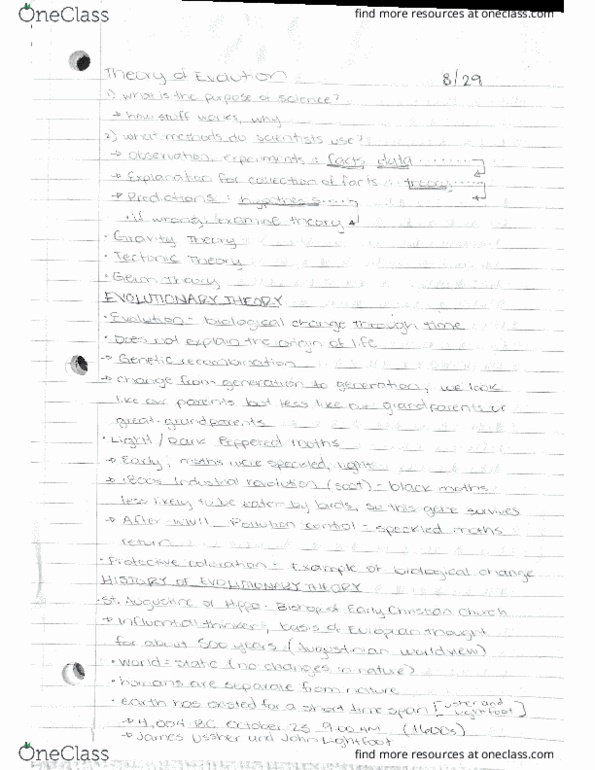 OneClass
find more resources at oneclass.com
Theory of Evolution
8/29
1) what is the purpose of science?
→ how stuff works, why
2) what methods do scientists use?
→ Observation, experiments : facts, data
→ Explanation for collection of facts : theory
→ Predictions : hypothesis
• if wrong, examine theory
• Gravity Theory
• Tectonic Theory
• Germ Theory
EVOLUTIONARY THEORY
• Evolution = biological change through time
• Does not explain the origin of life
→ Genetic recombination
→ change from generation to generation, we look
like our parents but less like our grandparents or
great-grandparents
• Light / Dark Peppered moths
→ Early, moths were speckled, light
→ 1800s Industrial revolution (soot) = black moths
less likely to be eaten by birds, so this gene survives
→ After WWII Pollution control = speckled moths
return
• Protective coloration = Example of biological change
HISTORY OF EVOLUTIONARY THEORY
• St. Augustine of Hippo - Bishop of Early Christian Church
→ Influential thinker, basis of European thought
for about 500 years (Augustinian worldview)
• world = static (no changes in nature)
• humans are separate from nature
• earth has existed for a short time span [Ussher and Lightfoot]
→ 4,004 BC October 23 9:00 AM (1600s)
→ James Ussher and John Lightfoot
OneClass
find more resources at oneclass.com